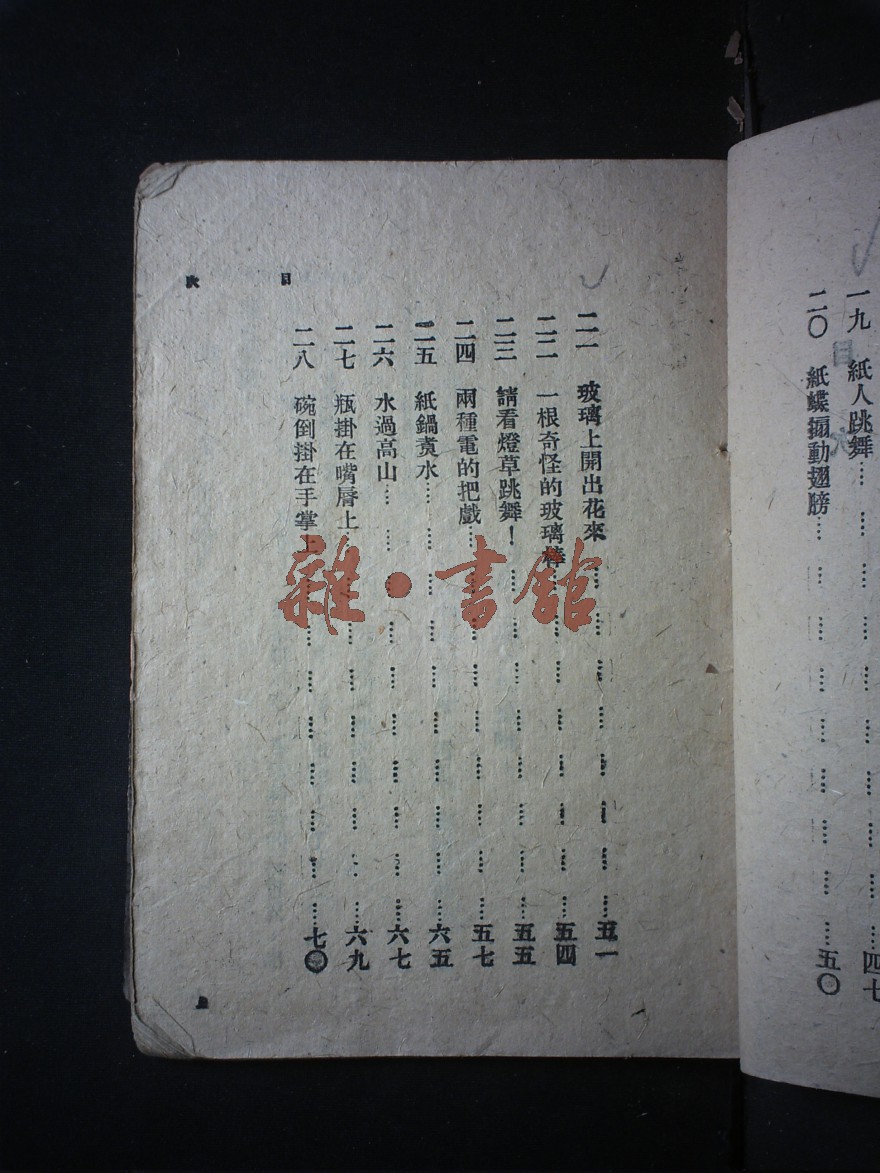 一九　紙人跳舞………………四七
二〇　紙蝶搧動翅膀………………五〇
目　次
二一　玻璃上開出花來………………五一
二二　一根奇怪的玻璃棒………………五四
二三　請看燈草跳舞！………………五五
二四　兩種電的把戲………………五七
二五　紙鍋煑水………………六五
二六　水過高山………………六七
二七　瓶掛在嘴脣上………………六九
二八　碗倒掛在手掌上………………七〇
雜・書館